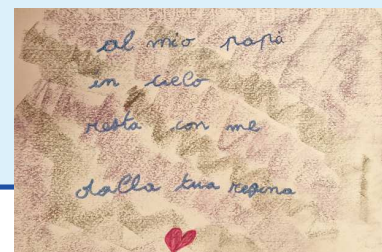 al mio papà
in cielo
resta con me
dalla tua regina